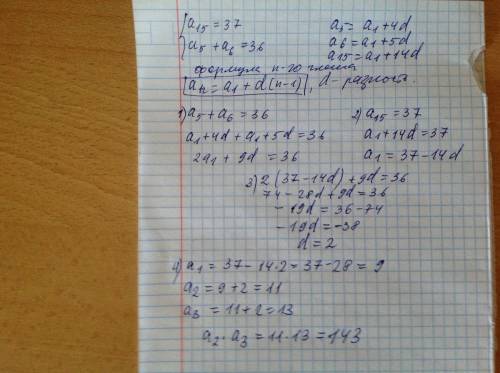 { a15 = 37
a5 + a6 = 36
a5 = a1+4d
a6 = a1+5d
a15 = a1+14d
формула n-го члена
an = a1+d(n-1), d-разность.
1) a5+a6=36
a1+4d+a1+5d=36
2a1+9d=36
2) a15=37
a1+14d=37
a1=37-14d
3) 2(37-14d)+9d=36
74-28d+9d=36
-19d=36-74
-19d=-38
d=2
4) a1=37-14·2=37-28=9
a2=9+2=11
a3=11+2=13
a2·a3=11·13=143